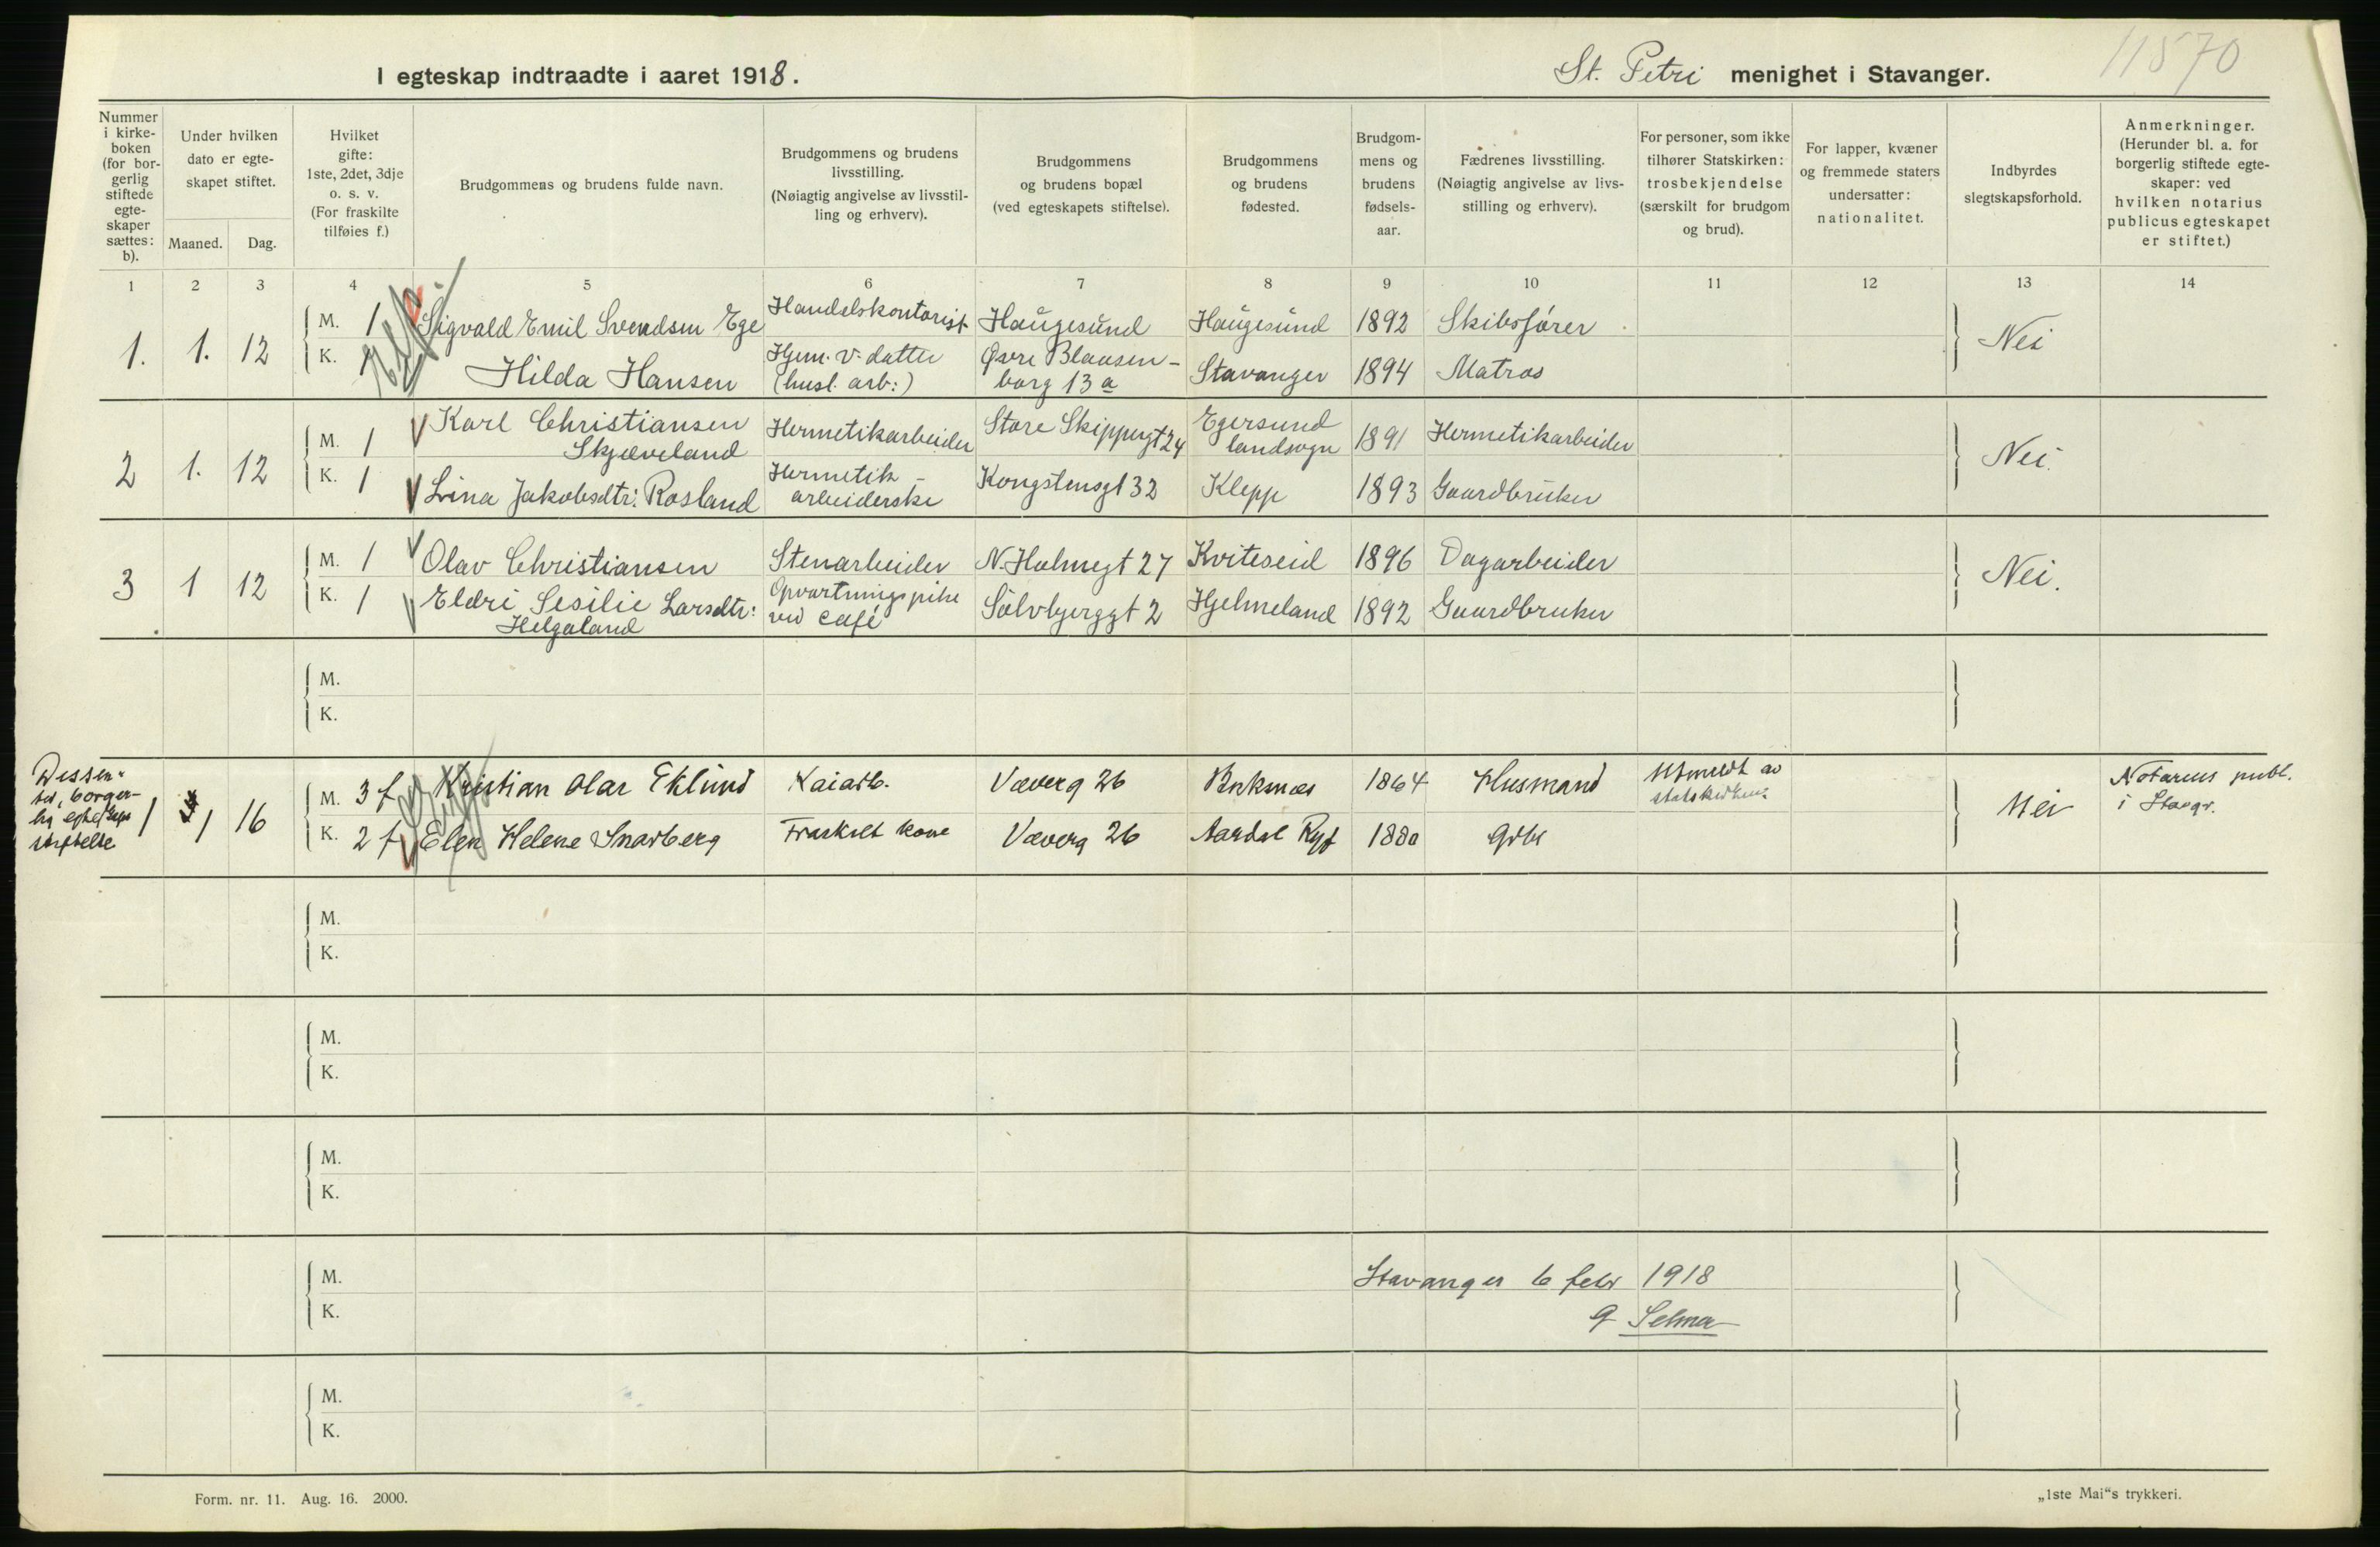 11570
I egteskap indtraadte i aaret 1918.
St. Petri menighet i Stavanger.
Nummer i kirke- boken (for bor- gerlig stiftede egte- skaper sættes: b).
Under hvilken dato er egte- skapet stiftet.
Maaned. Dag.
Hvilket gifte: 1ste, 2det, 3dje o. s. v. (For fraskilte tilføies f.)
Brudgommens og brudens fulde navn.
Brudgommens og brudens livsstilling. (Nøiagtig angivelse av livsstil- ling og erhverv).
Brudgommens og brudens bopæl (ved egteskapets stiftelse).
Brudgommens og brudens fødested.
Brudgom- mens og brudens fødsels- aar.
Fædrenes livsstilling. (Nøiagtig angivelse av livs- stilling og erhverv).
For personer, som ikke tilhører Statskirken: trosbekjendelse (særskilt for brudgom og brud).
For lapper, kvæner og fremmede staters undersatter: nationalitet.
Indbyrdes slegtskapsforhold.
Anmerkninger. (Herunder bl. a. for borgerlig stiftede egte- skaper: ved hvilken notarius publicus egteskapet er stiftet.)
1 2 3 4 5 6 7 8 9 10 11 12 13 14
1. 1. 12
M. 1 Sigvald Emil Svendsen Ege Handelskontorist Haugesund Haugesund 1892 Skibsfører
K. 1 Hilda Hansen Hjem. v. datter (husl. arb:) Øvre Blaasen- borg 13 a Stavanger 1894 Matros
Nei
2 1. 12
M. 1 Karl Christiansen Skjæveland Hermetikarbeider Store Skippergt 24 Egersund landsogn 1891 Hermetikarbeider
K. 1 Lina Jakobsdtr: Rosland Hermetik- arbeiderske Kongstensgt 32 Klepp 1893 Gaardbruker
Nei.
3 1 12
M. 1 Olav Christiansen Stenarbeider N. Holmegt 27 Kviteseid 1896 Dagarbeider
K. 1 Eldri Sesilie Larsdtr: Helgaland Opvartningspike ved café Sølvbjerggt 2 Hjelmeland 1892 Gaardbruker
Nei.
M.
K.
Dissen- ter, borger- lig egteskaps stiftelse
1 1 16
M. 3 f Kristian Olai Eklund Kaiarb. Væverg 26 1864 Husmand Utmeldt av statskirken
K. 2 f Elen Helene Snarberg Fraskilt kone Væverg 26 Aardal Ryf 1880 Grbr
Nei
Notarius publ. i Stavgr.
M.
K.
M.
K.
M.
K.
M.
K.
Stavanger 6 febr 1918
M.
K.
Form. nr. 11. Aug. 16. 2000.
„1ste Mai“s trykkeri.